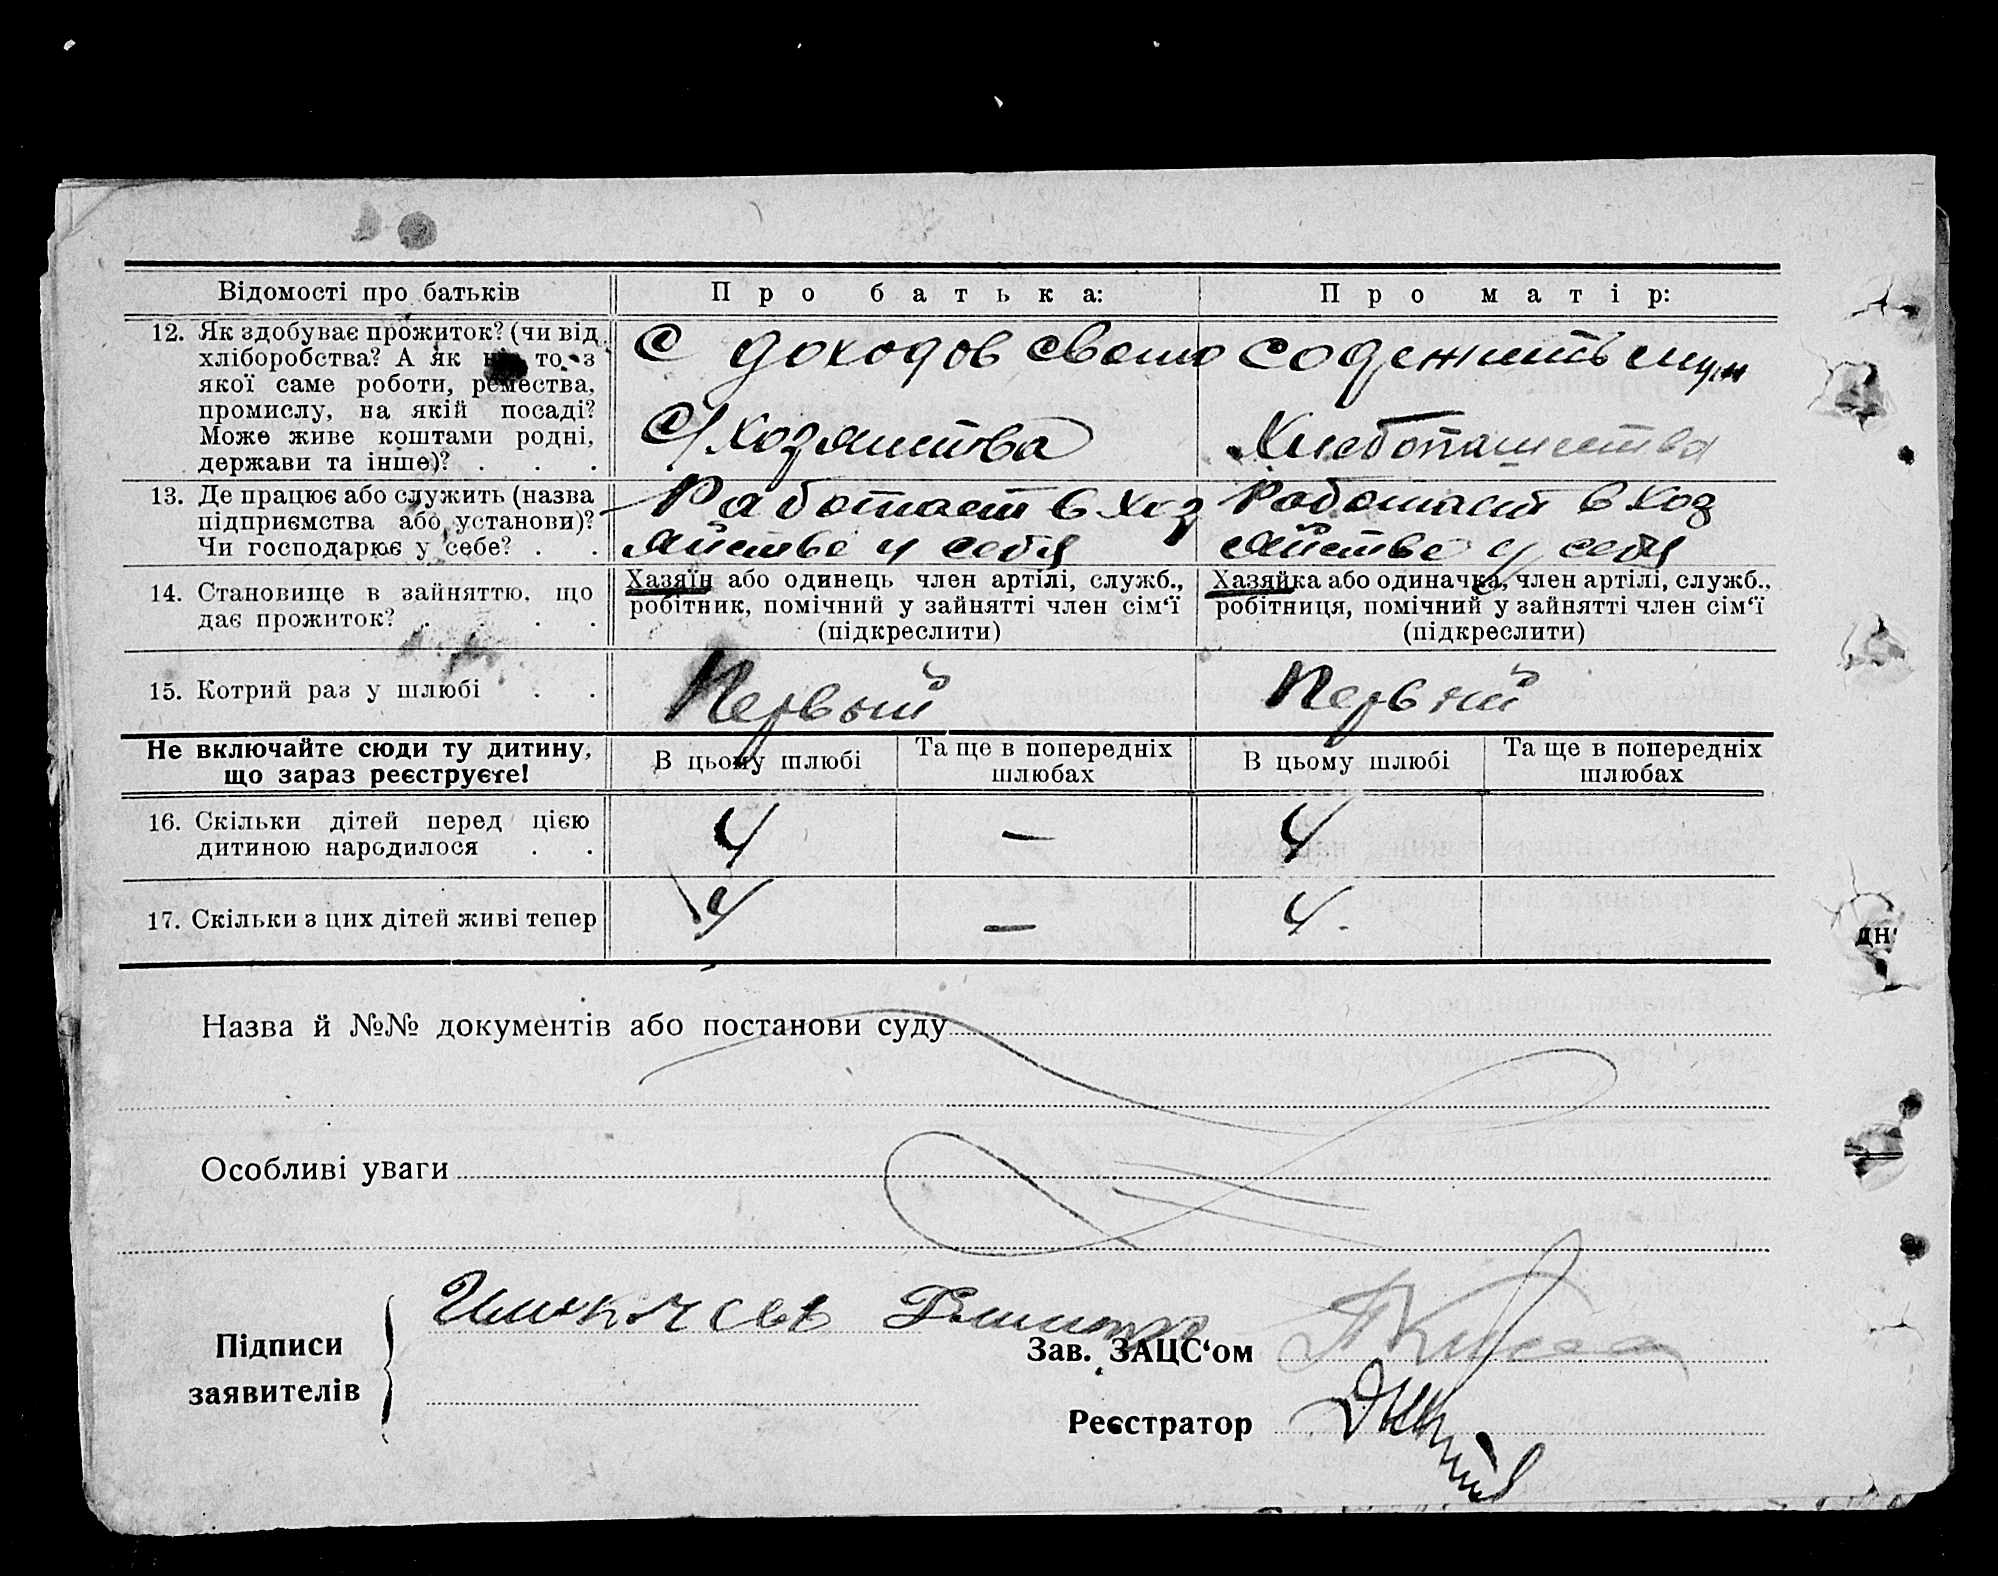 Відомості про батьків
Про батька:
Про матір:
12. Як здобуває прожиток? (чи від
хліборобства? А як ні то з
якої саме роботи, ремества,
промислу, на якій посаді?
Може живе коштами родні,
держави та інше)? . . .
С доходов своего
С/хозяиства
содежить муж
Хлебопашества
13. Де працює або служить (назва
підприємства або установи)?
Чи господарює у себе? . .
Работает в хоз
яйстве у себя
Работает в хоз
яйстве у себя
14. Становище в зайняттю, що
дає прожиток? . . . .
Хазяїн або одинець член артілі, служб.,
робітник, помічний у зайнятті член сім‘ї
(підкреслити)
Хазяйка або одиначка, член артілі, служб.,
робітниця, помічний у зайнятті член сім‘ї
(підкреслити)
15. Котрий раз у шлюбі . .
Первый
Первый
Не включайте сюди ту дитину,
що зараз реєструєте!
В цьому шлюбі
Та ще в попередніх
шлюбах
В цьому шлюбі
Та ще в попередніх
шлюбах
16. Скільки дітей перед цією
дитиною народилося . .
4
—
4
17. Скільки з цих дітей живі тепер
4
—
4.
Назва й №№ документів або постанови суду
Особливі уваги
Підписи
заявителів
Зав. ЗАЦС‘ом
Реєстратор
дн